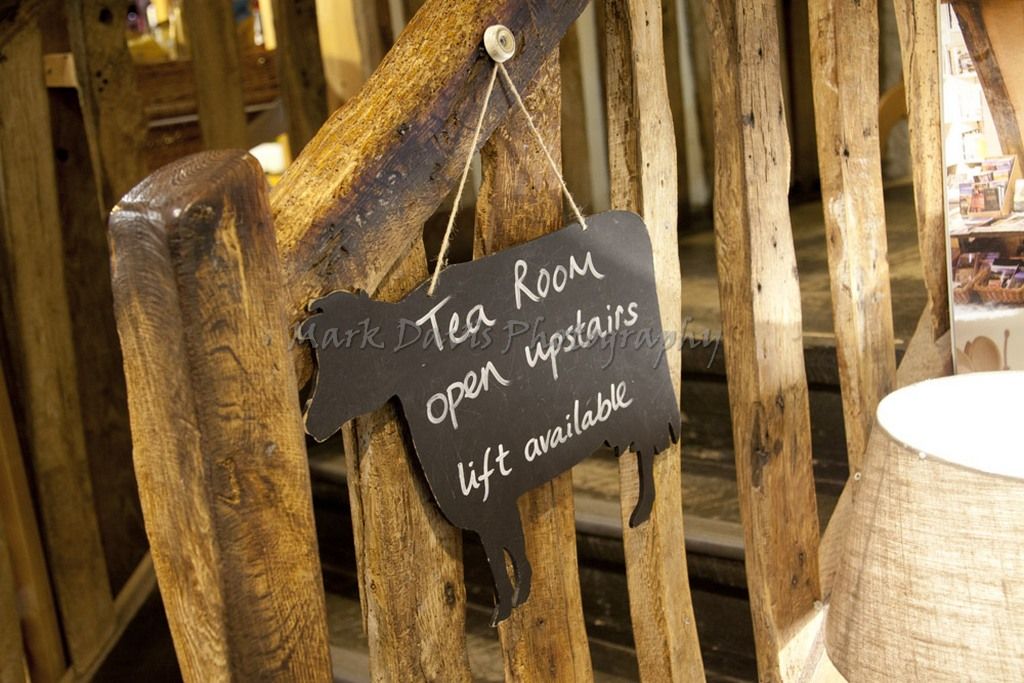 Tea Room
open upstairs
lift available
Mark Davis Photography